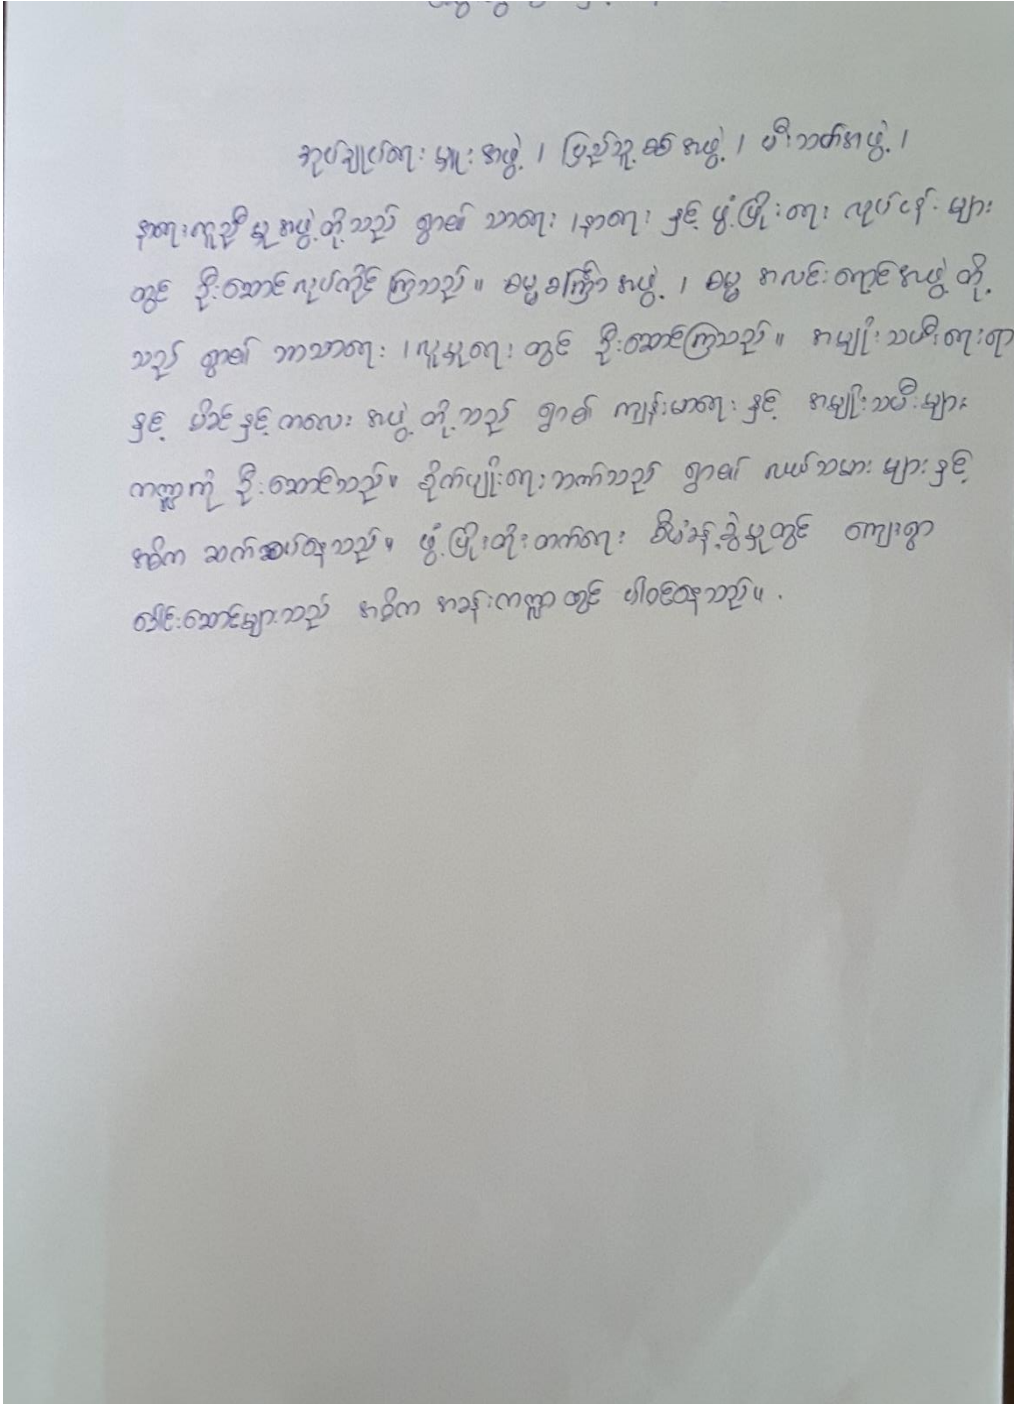 အုပ်ချုပ်ရေးမှူးအဖွဲ့၊ ပြည်သူ့စစ်အဖွဲ့၊ မီးသတ်အဖွဲ့၊
နာရေးကူညီမှုအဖွဲ့တို့သည် ရွာ၏ သာရေး၊နာရေး နှင့် ဖွံ့ဖြိုးရေး လုပ်ငန်းများ
တွင် ဦးဆောင်လုပ်ကိုင်ကြသည်။ ဓမ္မစကြာအဖွဲ့၊ ဓမ္မအလင်းရောင်အဖွဲ့တို့
သည် ရွာ၏ ဘာသာရေး၊လူမှုရေးတွင် ဦးဆောင်ကြသည်။ အမျိုးသမီးရေးရာ
နှင့် မိခင်နှင့်ကလေးအဖွဲ့တို့သည် ရွာ၏ ကျန်းမာရေးနှင့် အမျိုးသမီးများ
ကဏ္ဍကို ဦးဆောင်သည်။ စိုက်ပျိုးရေးဘက်သည် ရွာ၏ လယ်သမားများနှင့်
အဓိက ဆက်စပ်နေသည်။ ဖွံ့ဖြိုးတိုးတက်ရေး စီမံခန့်ခွဲမှုတွင် ကျေးရွာ
ခေါင်းဆောင်များသည် အဓိက အခန်းကဏ္ဍတွင် ပါဝင်နေသည်။